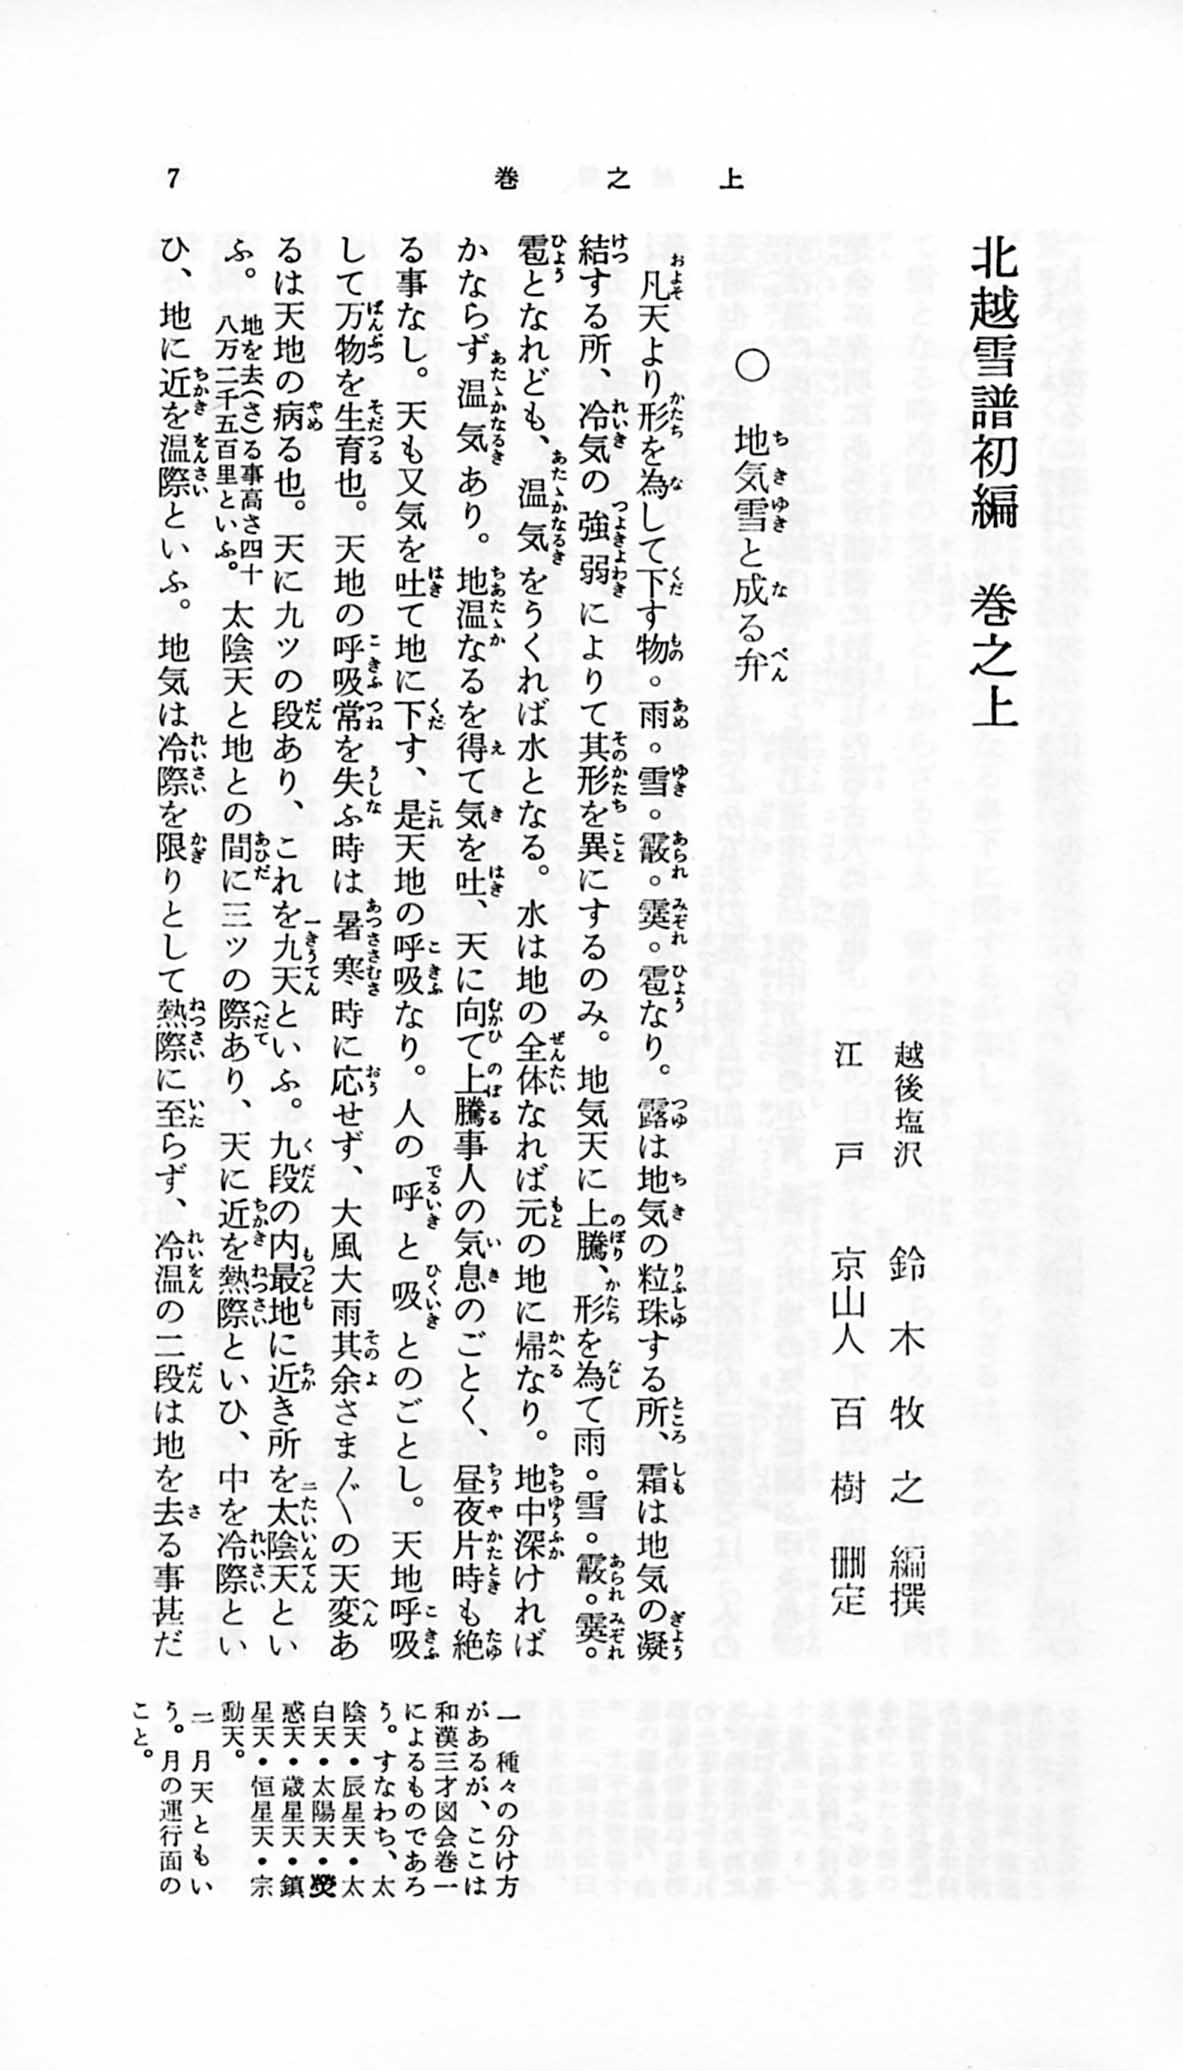 上之巻
7
北越雪譜初編　巻之上
越後塩沢　鈴木牧之　編撰
江戸　京山人百樹　刪定
○　地気雪と成る弁
凡天より形を為して下す物。雨。雪。霰。霙。雹なり。露は地気の粒珠する所、霜は地気の凝
結する所、冷気の強弱によりて其形を異にするのみ。地気天に上騰、形を為て雨。雪。霰。霙。
雹となれども、温気をうくれば水となる。水は地の全体なれば元の地に帰なり。地中深ければ
かならず温気あり。地温なるを得て気を吐、天に向て上騰事人の気息のごとく、昼夜片時も絶
る事なし。天も又気を吐て地に下す、是天地の呼吸なり。人の呼と吸とのごとし。天地呼吸
して万物を生育也。天地の呼吸常を失ふ時は暑寒時に応せず、大風大雨其余さまぐ〳〵の天変あ
るは天地の病る也。天に九ツの段あり、これを九天といふ。九段の内最地に近き所を太陰天とい
ふ。地を去(さ)る事高さ四十八万二千五百里といふ。太陰天と地との間に三ツの際あり、天に近を熱際といひ、中を冷際とい
ひ、地に近を温際といふ。地気は冷際を限りとして熱際に至らず、冷温の二段は地を去る事甚だ
一　種々の分け方
があるが、ここは
和漢三才図会巻一
によるものであろ
う。すなわち、太
陰天・辰星天・太
白天・太陽天・熒
惑天・歳星天・鎮
星天・恒星天・宗
動天。
二　月天ともい
う。月の運行面の
こと。